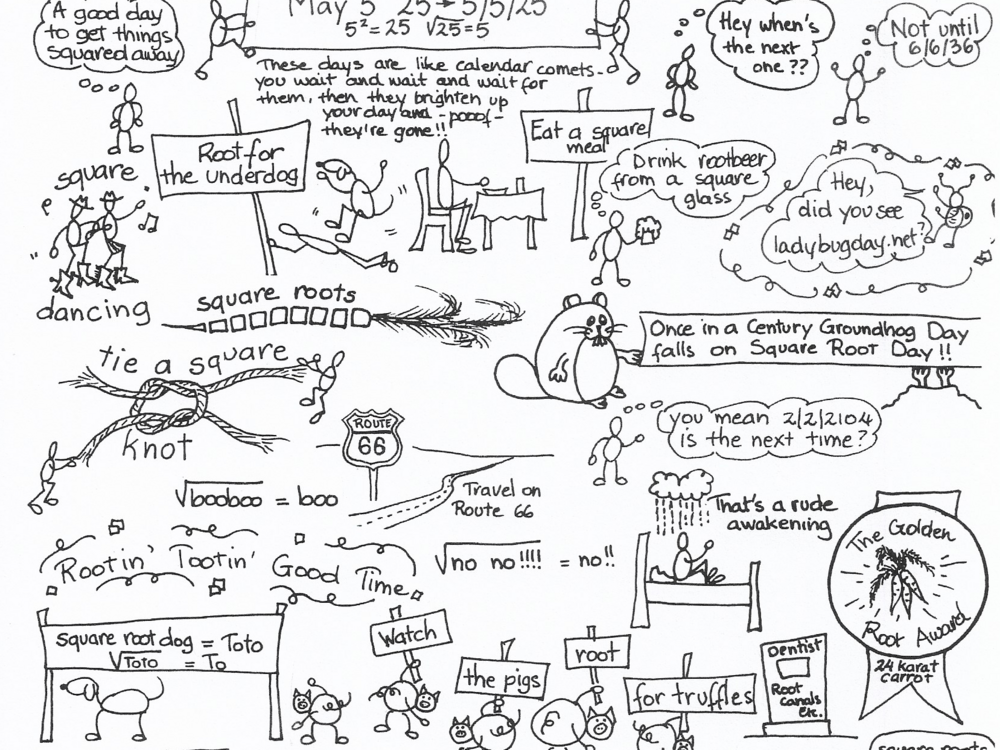 A good day
to get things
squared away
May 5 25 → 5/5/25
5² = 25 √25 = 5
Hey when's
the next
one ??
Not until
6/6/36
These days are like calendar comets-
you wait and wait and wait for
them, then they brighten up
your day and - pooof -
they're gone!!
Root for
the underdog
Eat a square
meal
Drink rootbeer
from a square
glass
Hey,
did you see
ladybugday.net?
square
dancing
square roots
Once in a Century Groundhog Day
falls on Square Root Day!!
tie a square
knot
you mean 2/2/2104
is the next time?
ROUTE
66
Travel on
Route 66
√booboo = boo
That's a rude
awakening
Rootin' Tootin'
Good Time
√no no!!!! = no!!
The Golden
Root Award
24 karat
carrot
square root dog = Toto
√Toto = To
Watch
the pigs
root
for truffles
Dentist
Root
canals
etc.